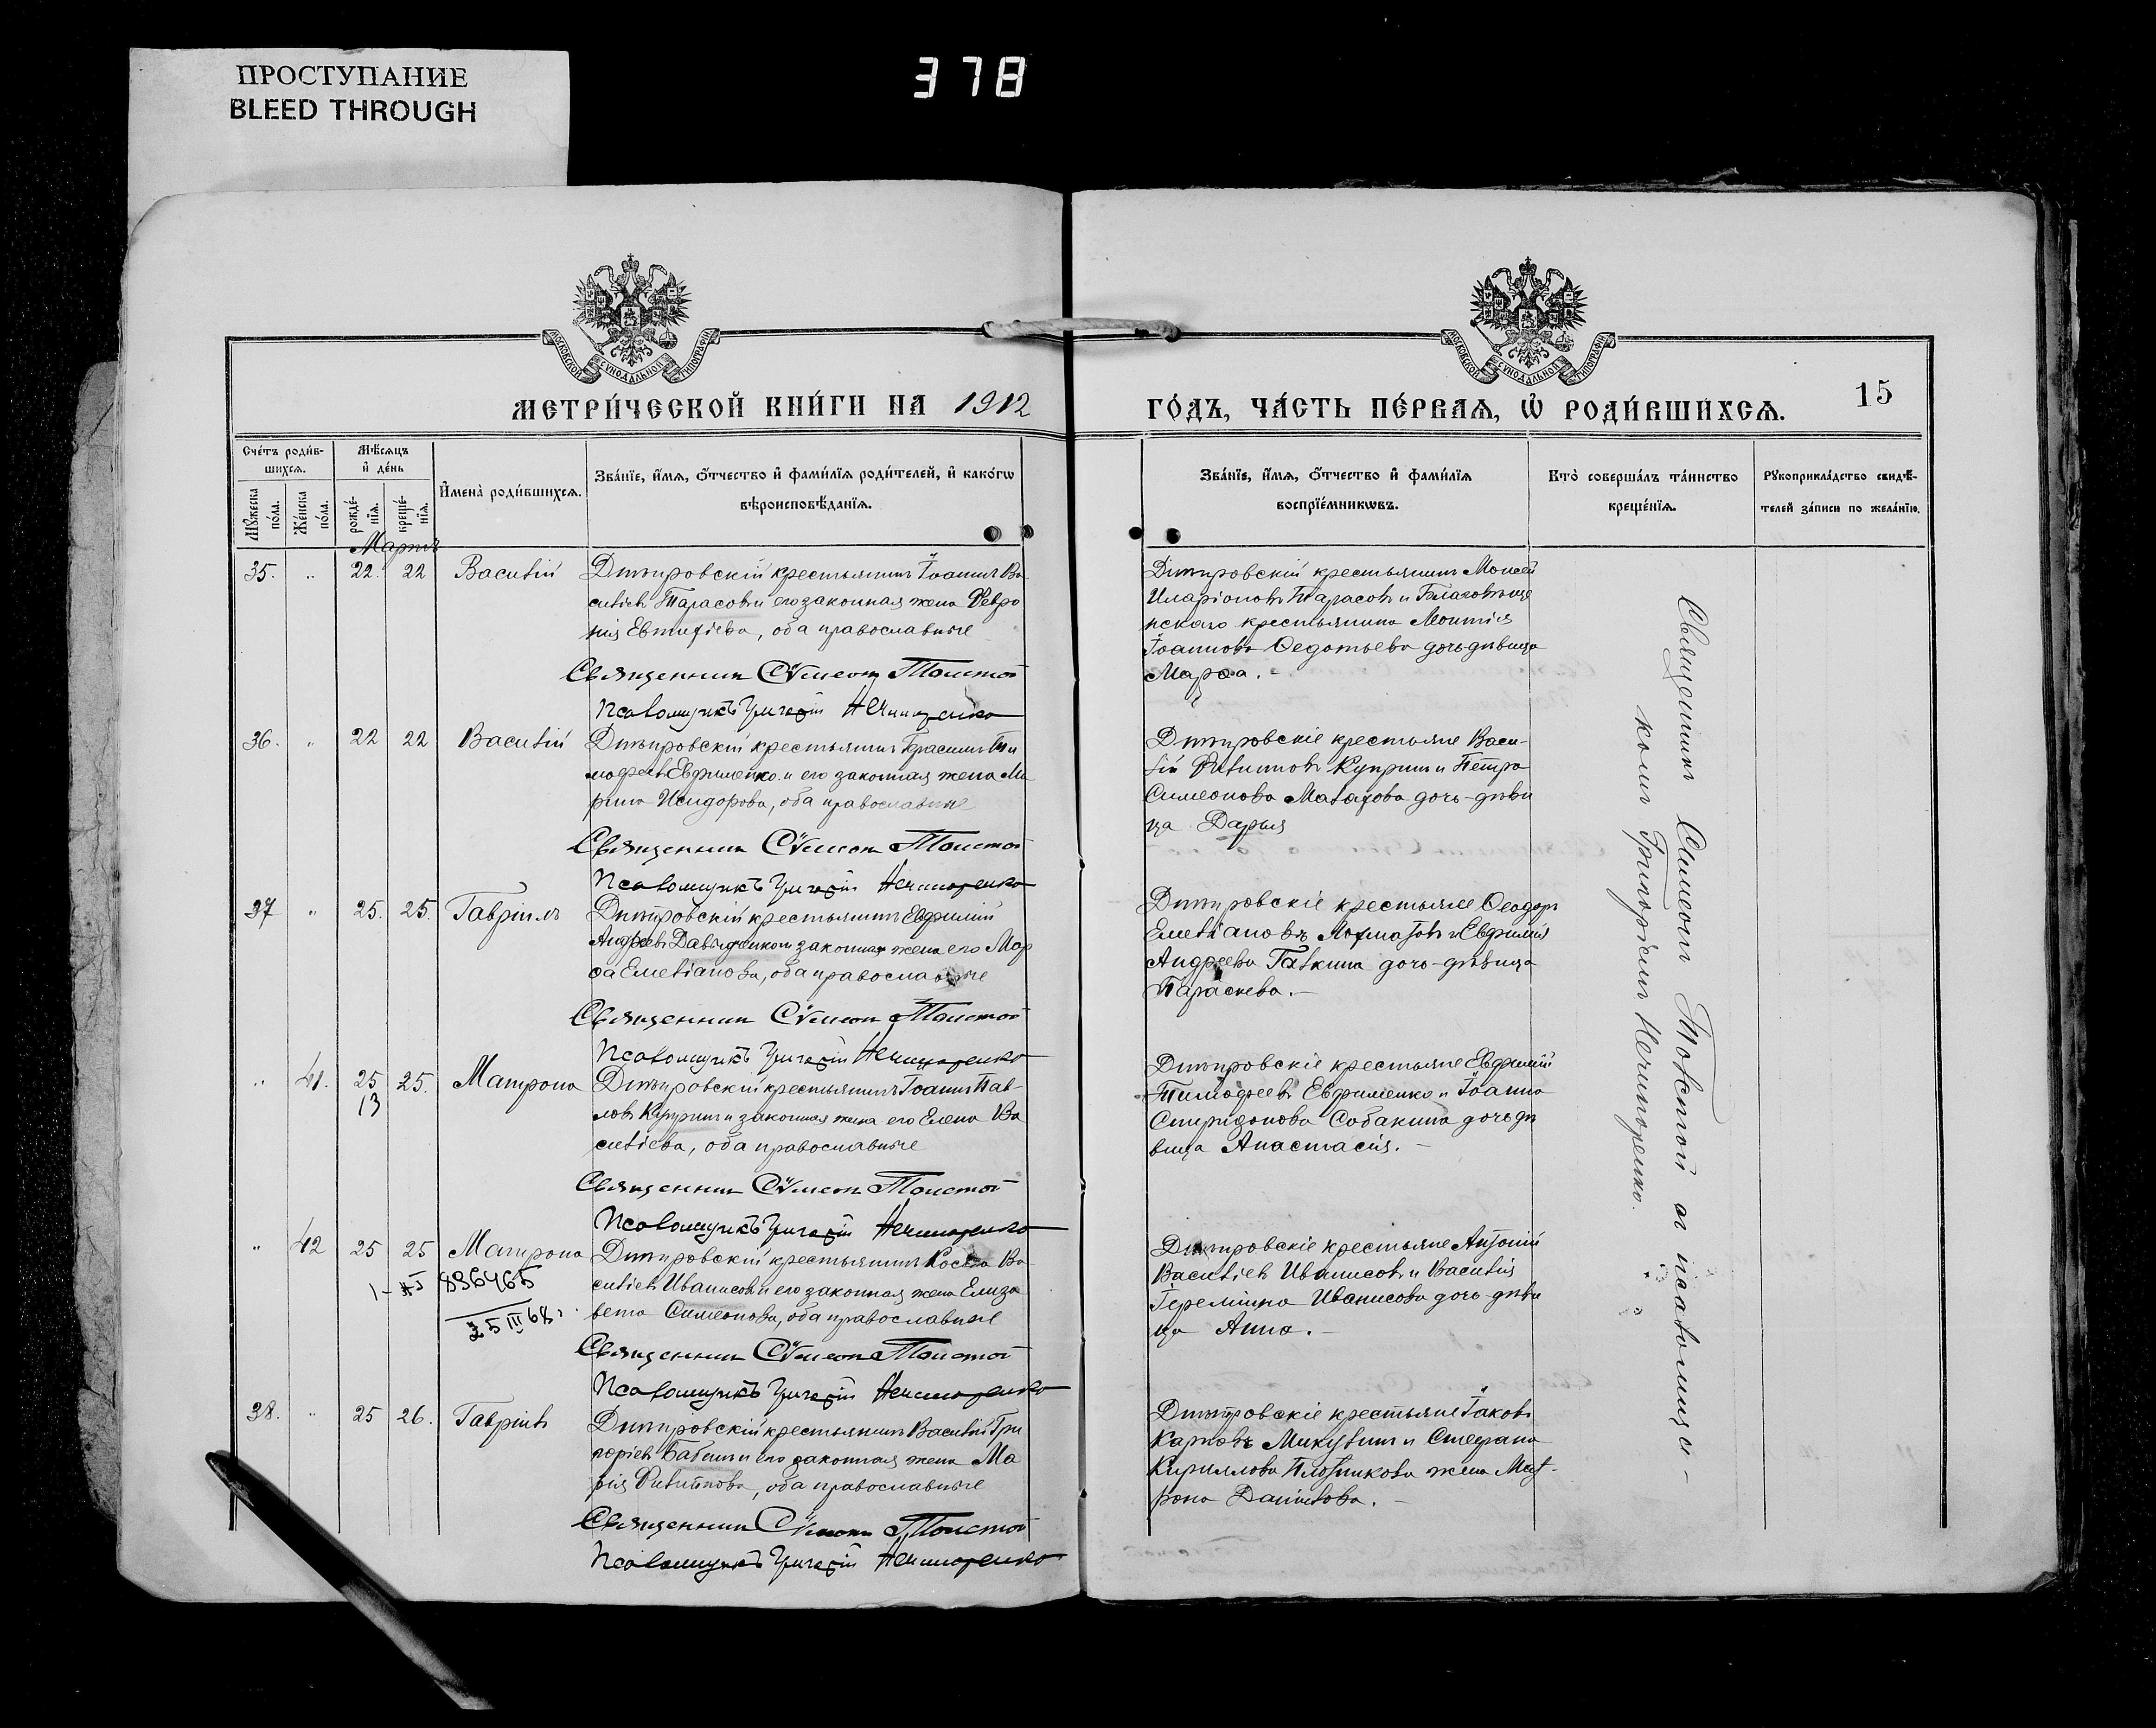 ПРОСТУПАНИЕ
BLEED THROUGH
378
МОСКОВСКОЙ СѴНОДАЛЬНОЙ ТИПОГРАФІИ
МОСКОВСКОЙ СѴНОДАЛЬНОЙ ТИПОГРАФІИ
МЕТРИ́ЧЕСКОЙ КНИ́ГИ НА 1912
ГО́ДЪ, ЧА́СТЬ ПЕ́РВАѦ, Ѽ РОДИ́ВШИХСѦ.
15
Сче́тъ роди́в-
шихсѧ.
Мѣ́сѧцъ
и҆ де́нь
Мꙋ́жеска по́ла.
Же́нска по́ла.
рожде́-
нїѧ.
креще́-
нїѧ.
И҆мена̀ роди́вшихсѧ.
Зва́нїе, и҆́мѧ, ѻ҆́тчество и҆ фами́лїѧ роди́телей, и҆ како́гѡ
вѣроисповѣ́данїѧ.
Зва́нїе, и҆́мѧ, ѻ҆́тчество и҆ фами́лїѧ
воспрїе́мникѡвъ.
Кто̀ соверша́лъ та́инство
креще́нїѧ.
Рꙋкоприкла́дство свидѣ́-
телей за́писи по жела́нїю.
Марта
35. „ 22. 22 Василій Дмитровскій крестьянинъ Іоаннъ Ва-
сильевъ Тарасовъ и его законная жена Февро
нія Евтихіева, оба православные
Священник Сѵмеон Толстой
Псаломщикъ Григорій Нечипоренко
Моисей
Иларіоновъ Тарасовъ и Благовѣще
нскаго крестьянина Леонтія
Іоаннова Ѳедотьева дочь-дѣвица
Марѳа.
36. „ 22 22 Василій Дмитровскій крестьянинъ Герасимъ Ти
мофеевъ Евфименко и его законная жена Ма
рина Исидорова, оба православные
Священник Сѵмеон Толстой
Псаломщикъ Григорій Нечипоренко
Дмитровскіе крестьяне Васи-
лій Филипповъ Куприн и Петра
Симеонова дочь-дѣви
ца Дарья
37 „ 25. 25. Гавріилъ Дмитровскій крестьянинъ Евфимій
Андреевъ Давыденко и законная жена его Мар
ѳа Емеліанова, оба православные
Священник Сѵмеон Толстой
Псаломщикъ Григорій Нечипоренко
Дмитровскіе крестьяне Ѳеодоръ
Емеліановъ и Евфимія
Андреева Галкина дочь-дѣвица
Параскева.
„ 41. 25 25. Матрона Дмитровскій крестьянинъ Іоаннъ Пав-
13
ловъ Куприн и законная жена его Елена Ва
сильева, оба православные
Священник Сѵмеон Толстой
Псаломщикъ Григорій Нечипоренко
Дмитровскіе крестьяне Евфимій
Тимофеевъ Евфименко и Іоанна
Спиридонова Собакина дочь дѣ
вица Анастасія.
„ 42 25 25 Матрона Дмитровскій крестьянинъ Косьма Ва-
сильевъ Иванисовъ и его законная жена Елиза
вета Симеонова, оба православные
836465
25 III 68г
Священник Сѵмеон Толстой
Псаломщикъ Григорій Нечипоренко
Дмитровскіе крестьяне Антоній
Васильевъ Иванисовъ и Василія
Іереміина Иванисова дочь-дѣви
ца Анна.
38. „ 25 26. Гавріилъ Дмитровскій крестьянинъ Василій Гри
горьевъ Бабин и его законная жена Ма
рія Филиппова, оба православные
Священник Сѵмеон Толстой
Псаломщикъ Григорій Нечипоренко
Дмитровскіе крестьяне Іаковъ
Карповъ Микулин и Стефана
Кириллова Плотникова жена Мат-
рона Даніилова.
Священникъ Симеонъ Толстой съ псаломщи-
комъ Григоріемъ Нечипоренко.